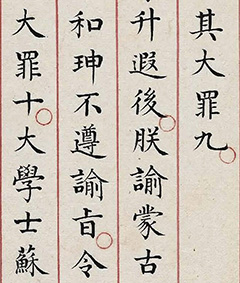 其大罪九
升遐後朕諭蒙古
和珅不遵諭㫖令
大罪十大學士蘇